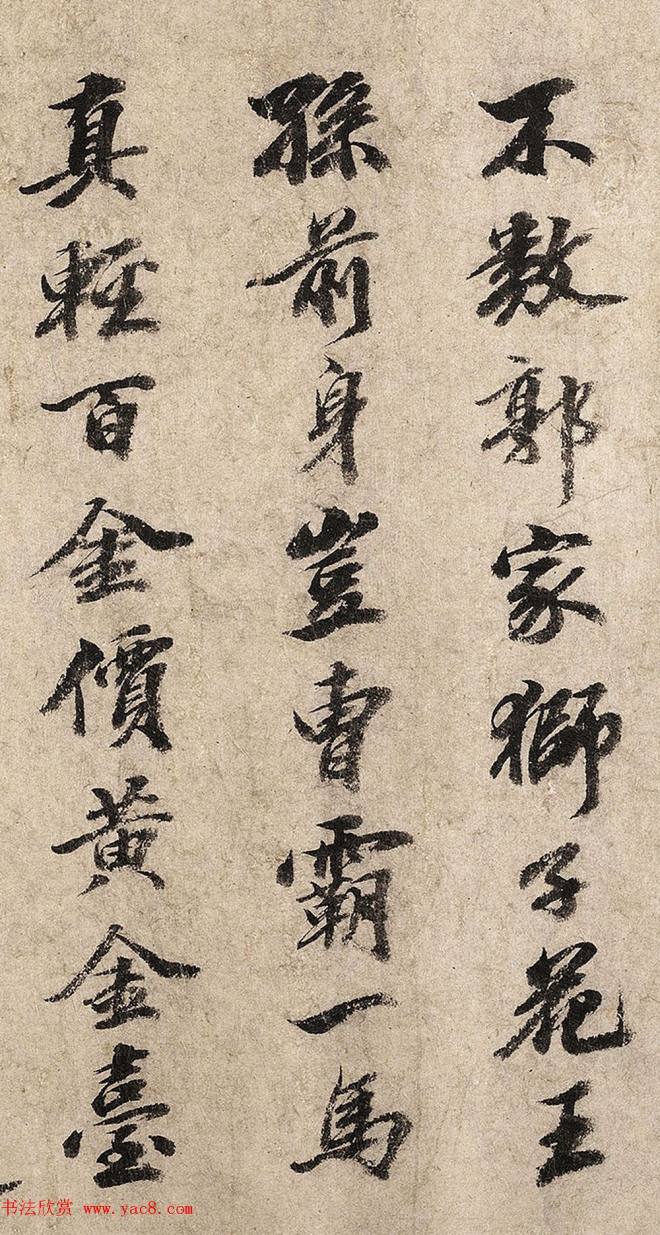 不數郭家獅子花王
孫前身豈曹霸一馬
真輕百金價黃金臺
书法欣赏 www.yac8.com